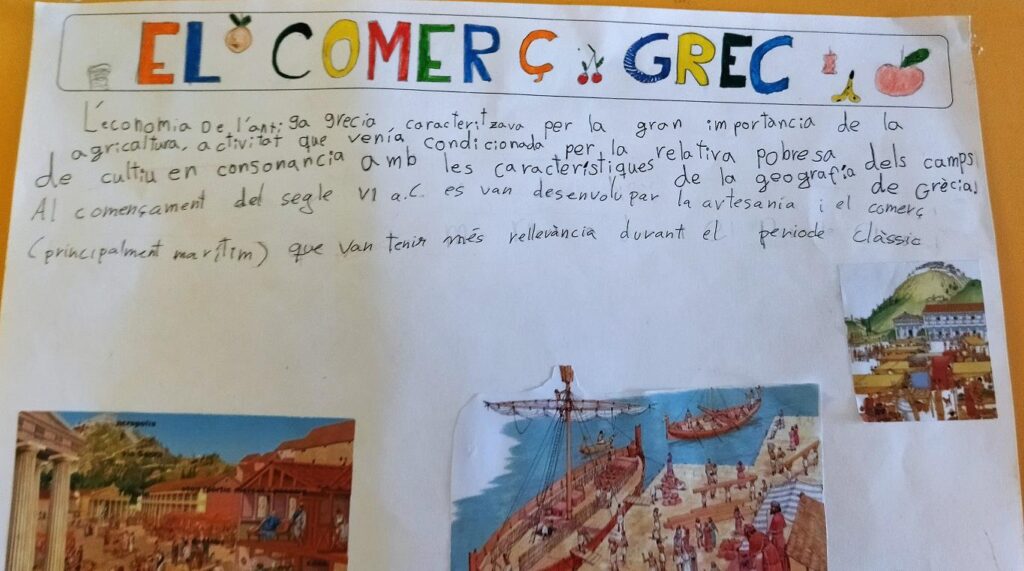 EL COMERÇ GREC
L'economia De l'antiga grecia caracteritzava per la gran importancia de la
agricaltura, activitat que venía condicionada per la relativa pobresa dels camps
de cultiu en consonancia amb les característiques de la geografia de Grècia
Al començament del segle VI a.C. es van desenvolupar la artesania i el comerç
(principalment marítim) que van tenir més rellevància durant el periode clàssic
acropolis